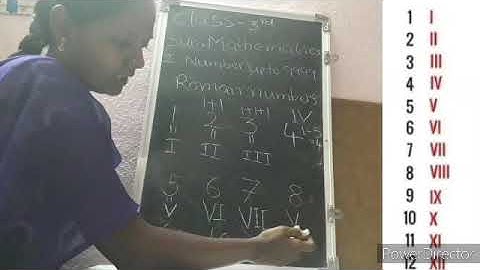 Class - 3rd
Sub. Mathematics
Roman numbers
1+1 1+1+1 IV
1 2 3 4
I II III
5 6 7 8
V VI VII V
1 I
2 II
3 III
4 IV
5 V
6 VI
7 VII
8 VIII
9 IX
10 X
11 XI
12 XII
PowerDirector